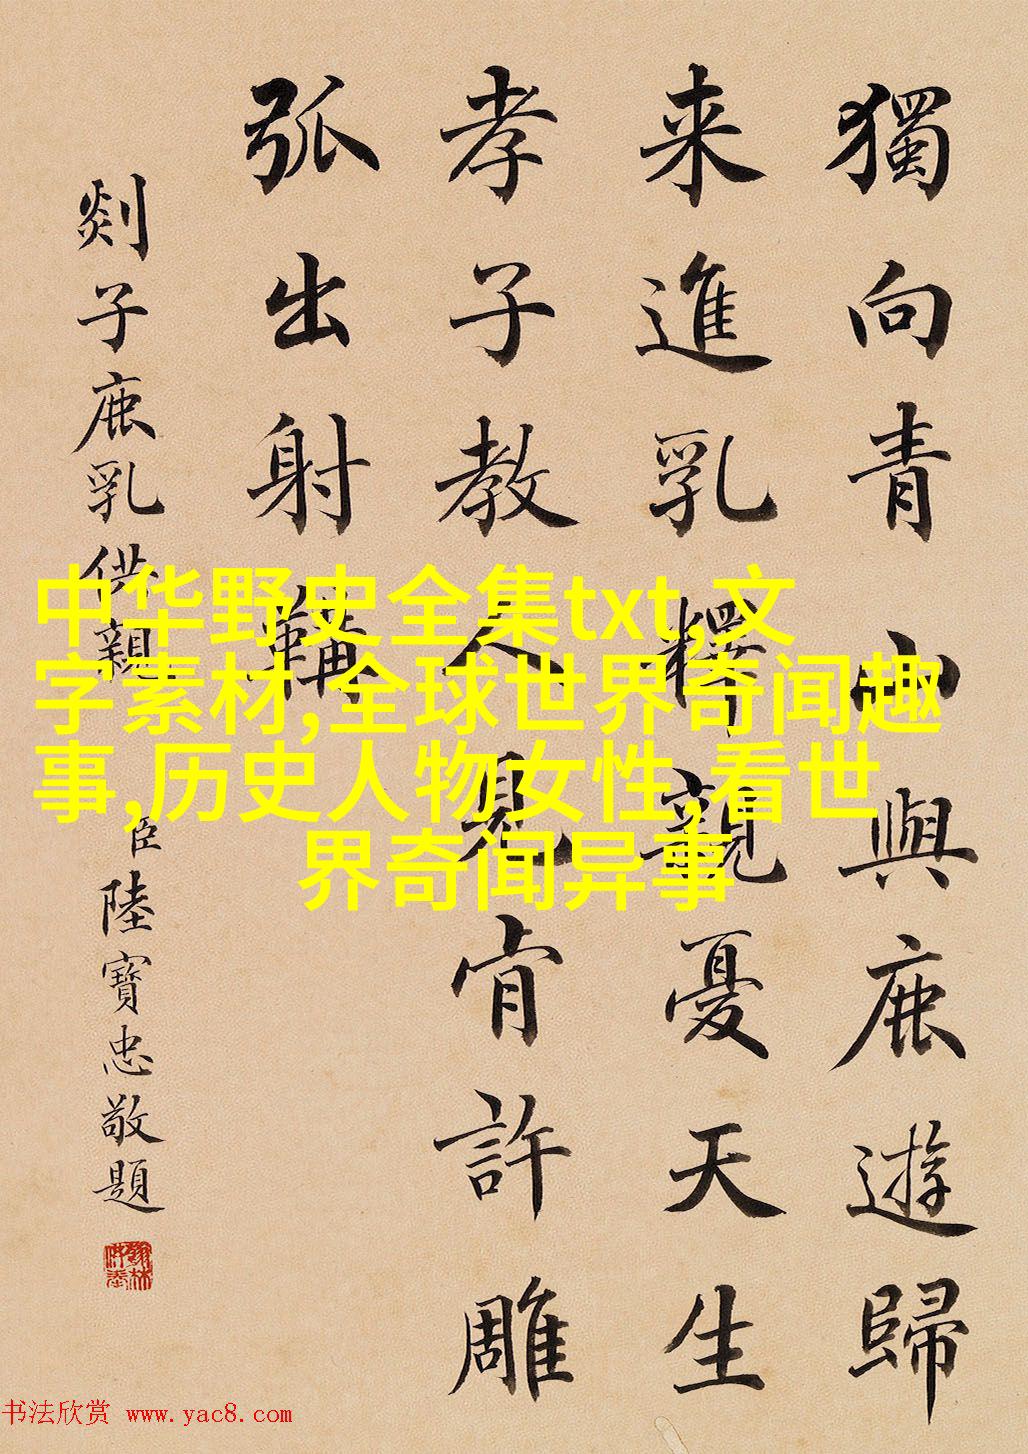 獨向青山與鹿遊歸
来進乳釋親憂天生
孝子教人見肯許雕
弧出射韝
剡子鹿乳供親
臣陸寶忠敬題
中华野史全集txt,文
字素材,全球世界奇闻趣
事,历史人物女性,看世
界奇闻异事
书法欣赏 www.yac8.com